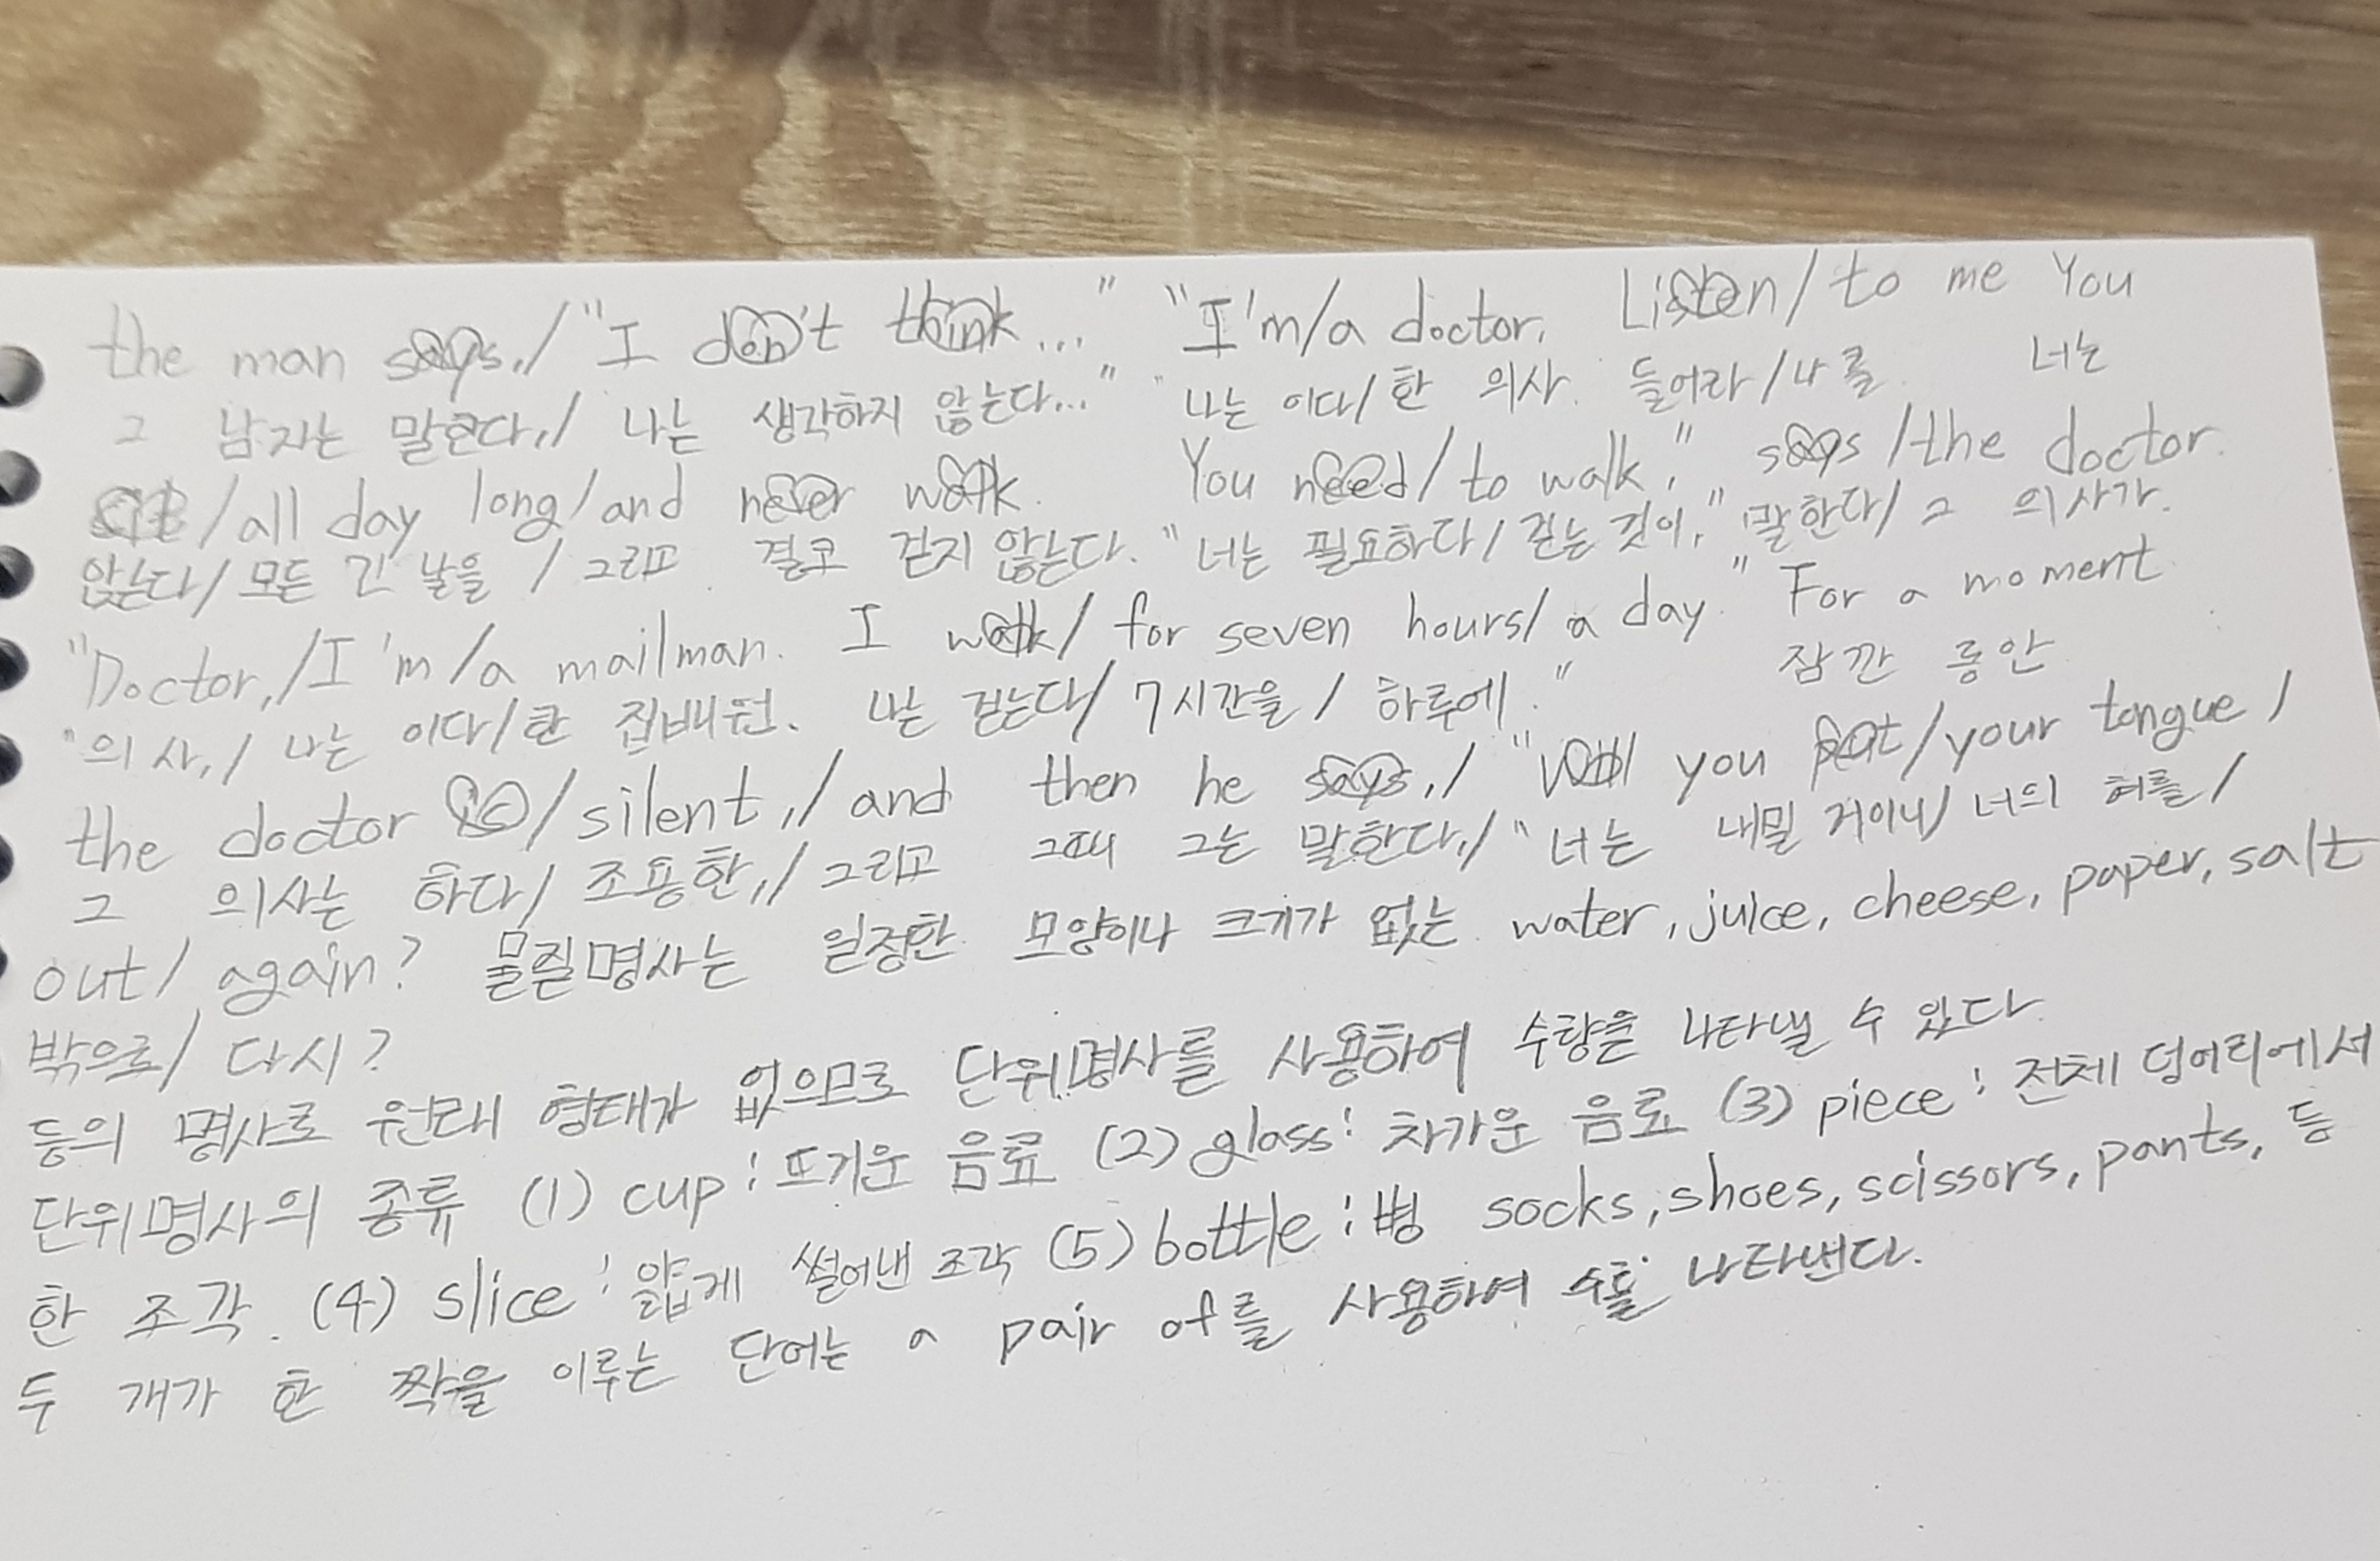 the man says,/"I don't think..." "I'm/a doctor. Listen/to me You
그 남자는 말한다,/ 나는 생각하지 않는다..." "나는 이다/한 의사. 들어라/나를 너는
sit/all day long/and never walk. You need/to walk," says/the doctor.
앉는다/모든 긴 날을/그리고 결코 걷지 않는다. "너는 필요하다/걷는 것이," 말한다/그 의사가.
"Doctor,/I'm/a mailman. I walk/for seven hours/a day." For a moment
"의사,/나는 이다/한 집배원. 나는 걷는다/7시간을/하루에." 잠깐 동안
the doctor is/silent,/and then he says,/"Will you put/your tongue/
그 의사는 하다/조용한,/그리고 그때 그는 말한다,/"너는 내밀 거이니/너의 혀를/
out/again? 물질명사는 일정한 모양이나 크기가 없는 water, juice, cheese, paper, salt
밖으로/다시?
등의 명사로 원래 형태가 없으므로 단위명사를 사용하여 수량을 나타낼 수 있다.
단위명사의 종류 (1) cup: 뜨거운 음료 (2) glass: 차가운 음료 (3) piece: 전체 덩어리에서
한 조각. (4) slice: 얇게 썰어낸 조각 (5) bottle: 병 socks, shoes, scissors, pants, 등
두 개가 한 짝을 이루는 단어는 a pair of를 사용하여 수를 나타낸다.